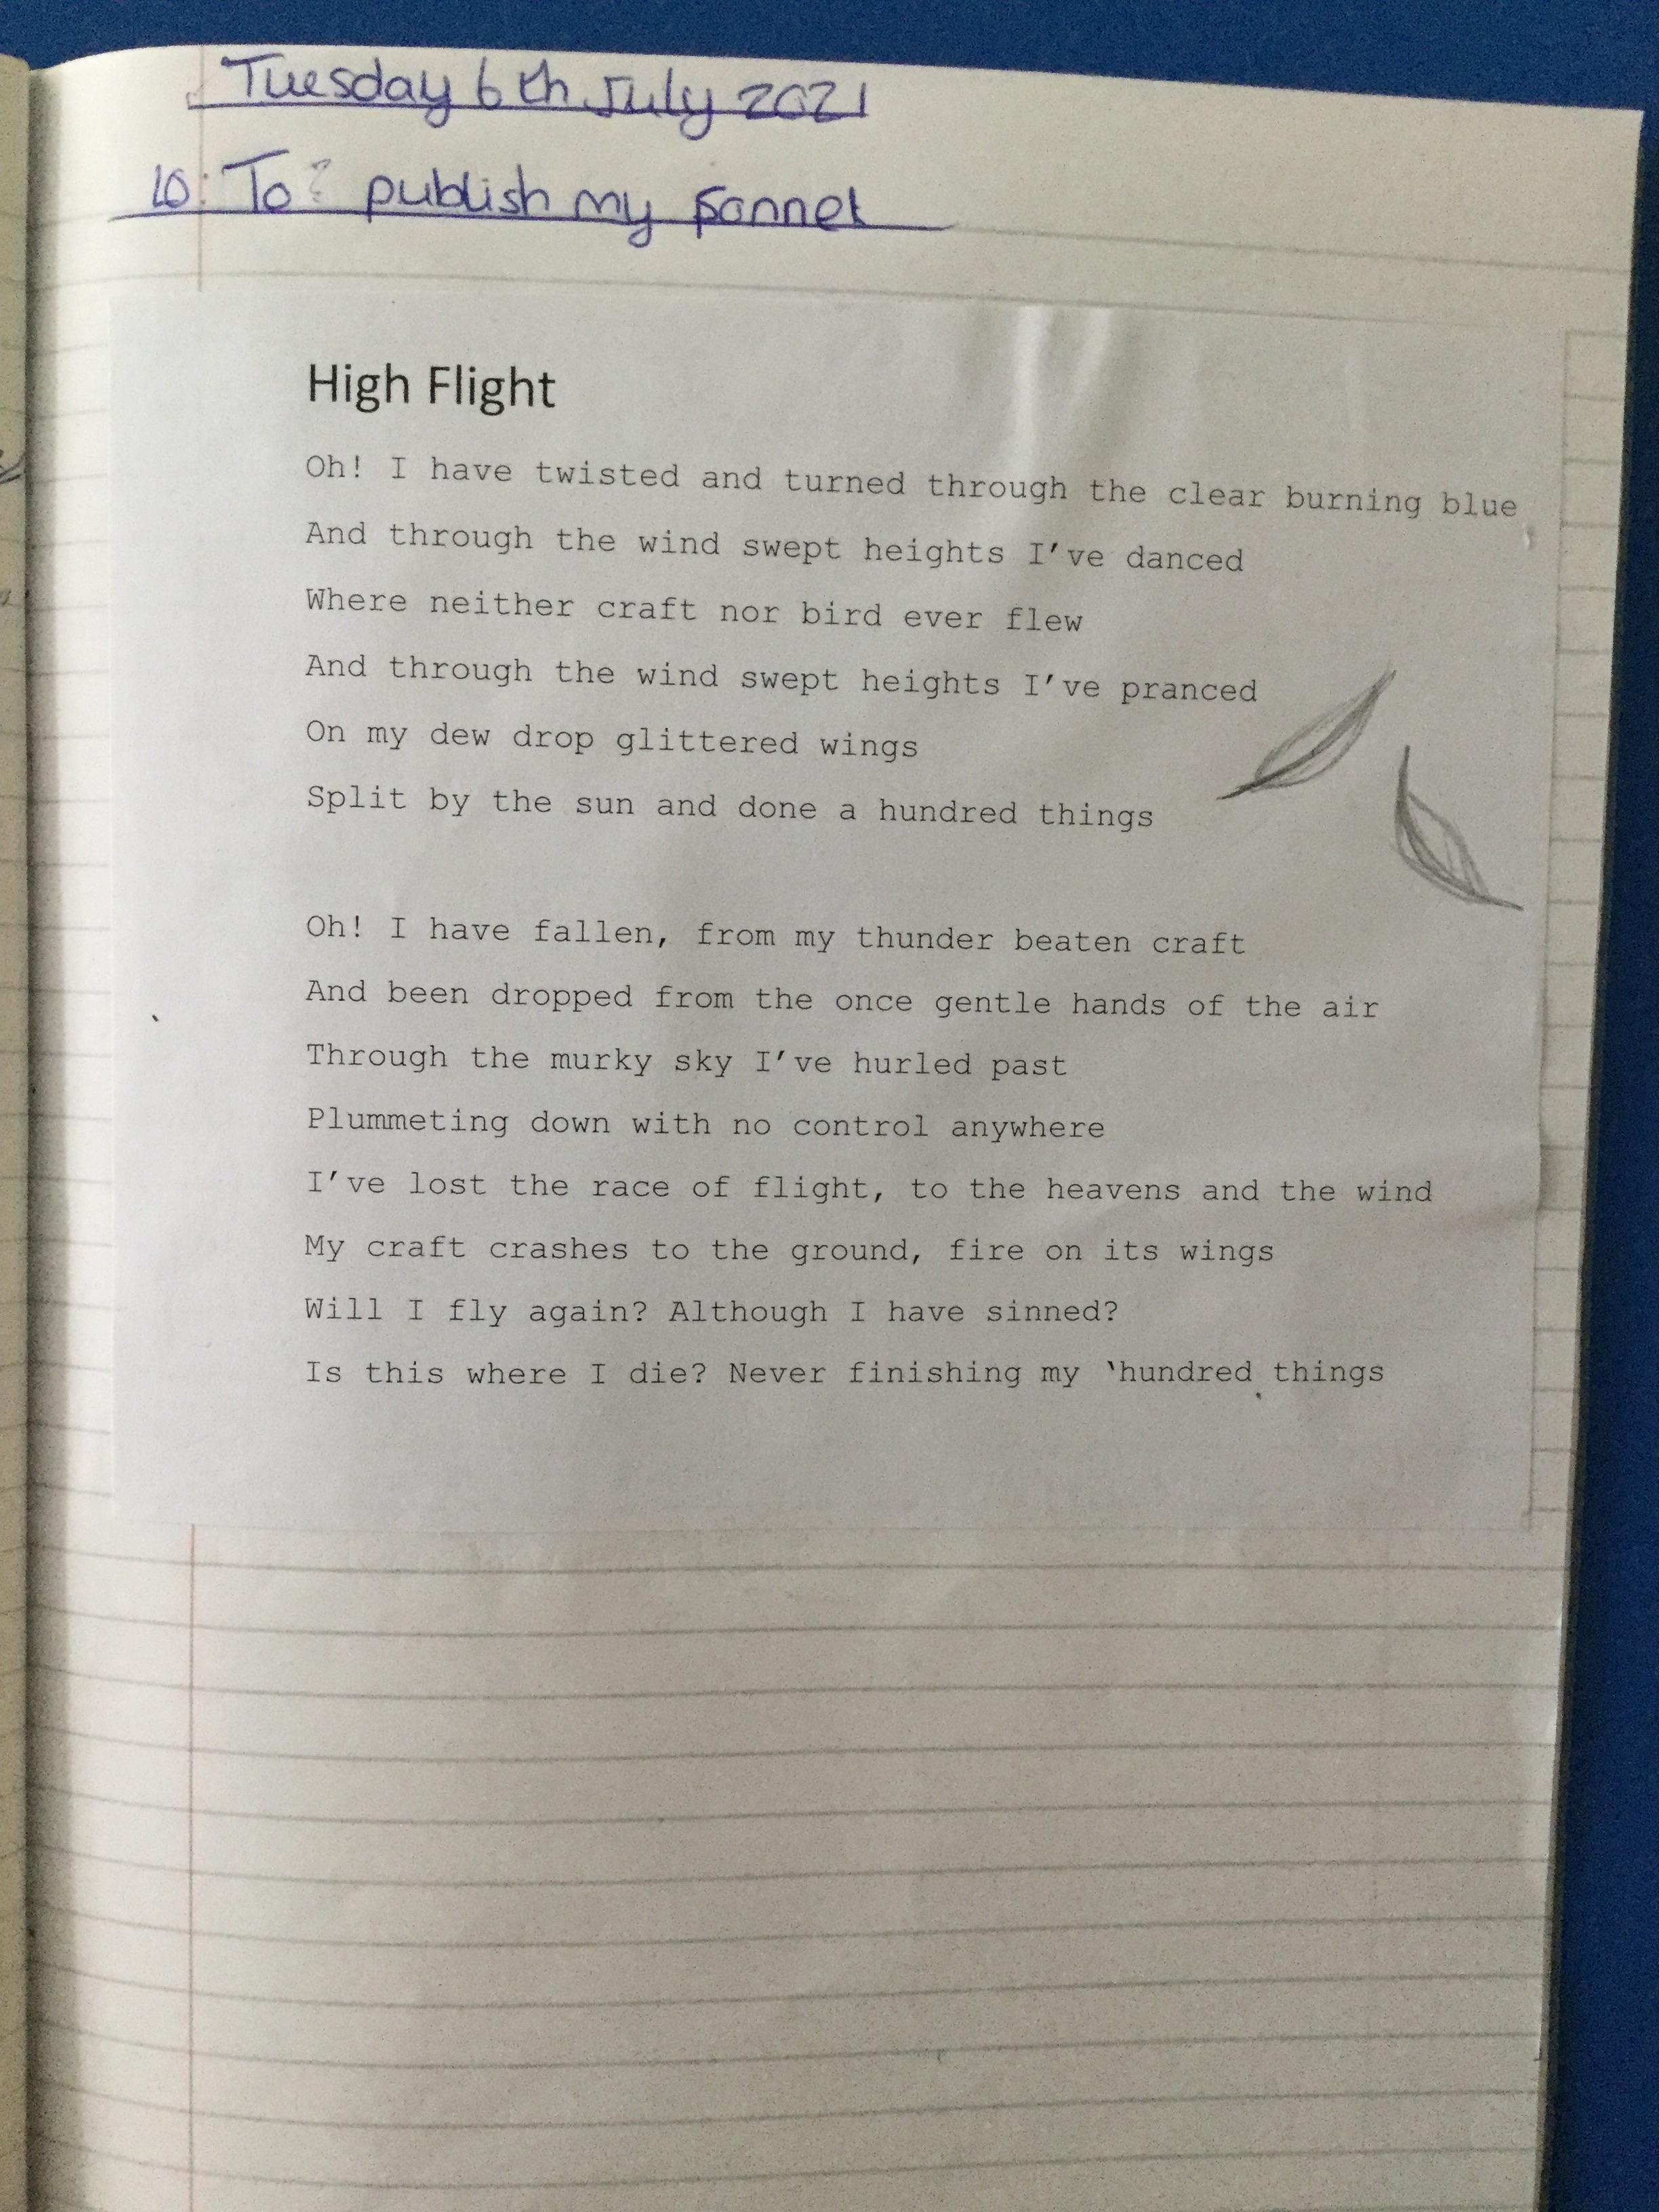 Tuesday 6th July 2021
LO: To publish my sonnet
High Flight
Oh! I have twisted and turned through the clear burning blue
And through the wind swept heights I've danced
Where neither craft nor bird ever flew
And through the wind swept heights I've pranced
On my dew drop glittered wings
Split by the sun and done a hundred things
Oh! I have fallen, from my thunder beaten craft
And been dropped from the once gentle hands of the air
Through the murky sky I've hurled past
Plummeting down with no control anywhere
I've lost the race of flight, to the heavens and the wind
My craft crashes to the ground, fire on its wings
Will I fly again? Although I have sinned?
Is this where I die? Never finishing my 'hundred things